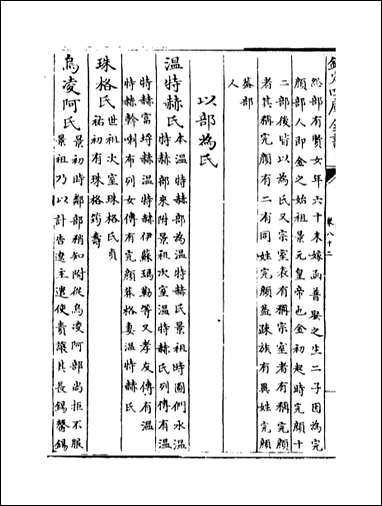 欽定四庫全書
卷八十二
然部有賢女年六十未嫁函普娶之生二子因為完
顔部人即金之始祖景元皇帝也金初起時完顔十
二部後皆以為氏又宗室表有稱宗室者有稱完顔
者其稱完顔有二有同姓完顔蓋疎族有異姓完顔
蓋部
人
以部為氏
温特赫氏
本温特赫部為温特赫氏景祖時圖們水温
特赫部來附景祖次室温特赫氏列傳有温
特赫富埒赫伊蘇瑪勒等又孝友傳有温
特赫斡喇布列女傳有完顔蘇格妻温特赫氏
珠格氏
世祖次室珠格氏貞
祐初有珠格筠壽
烏凌阿氏
景初時鄰部稍知附從烏凌阿部尚拒不服
景祖乃以計告遼主遼使責讓其長錫赫錫